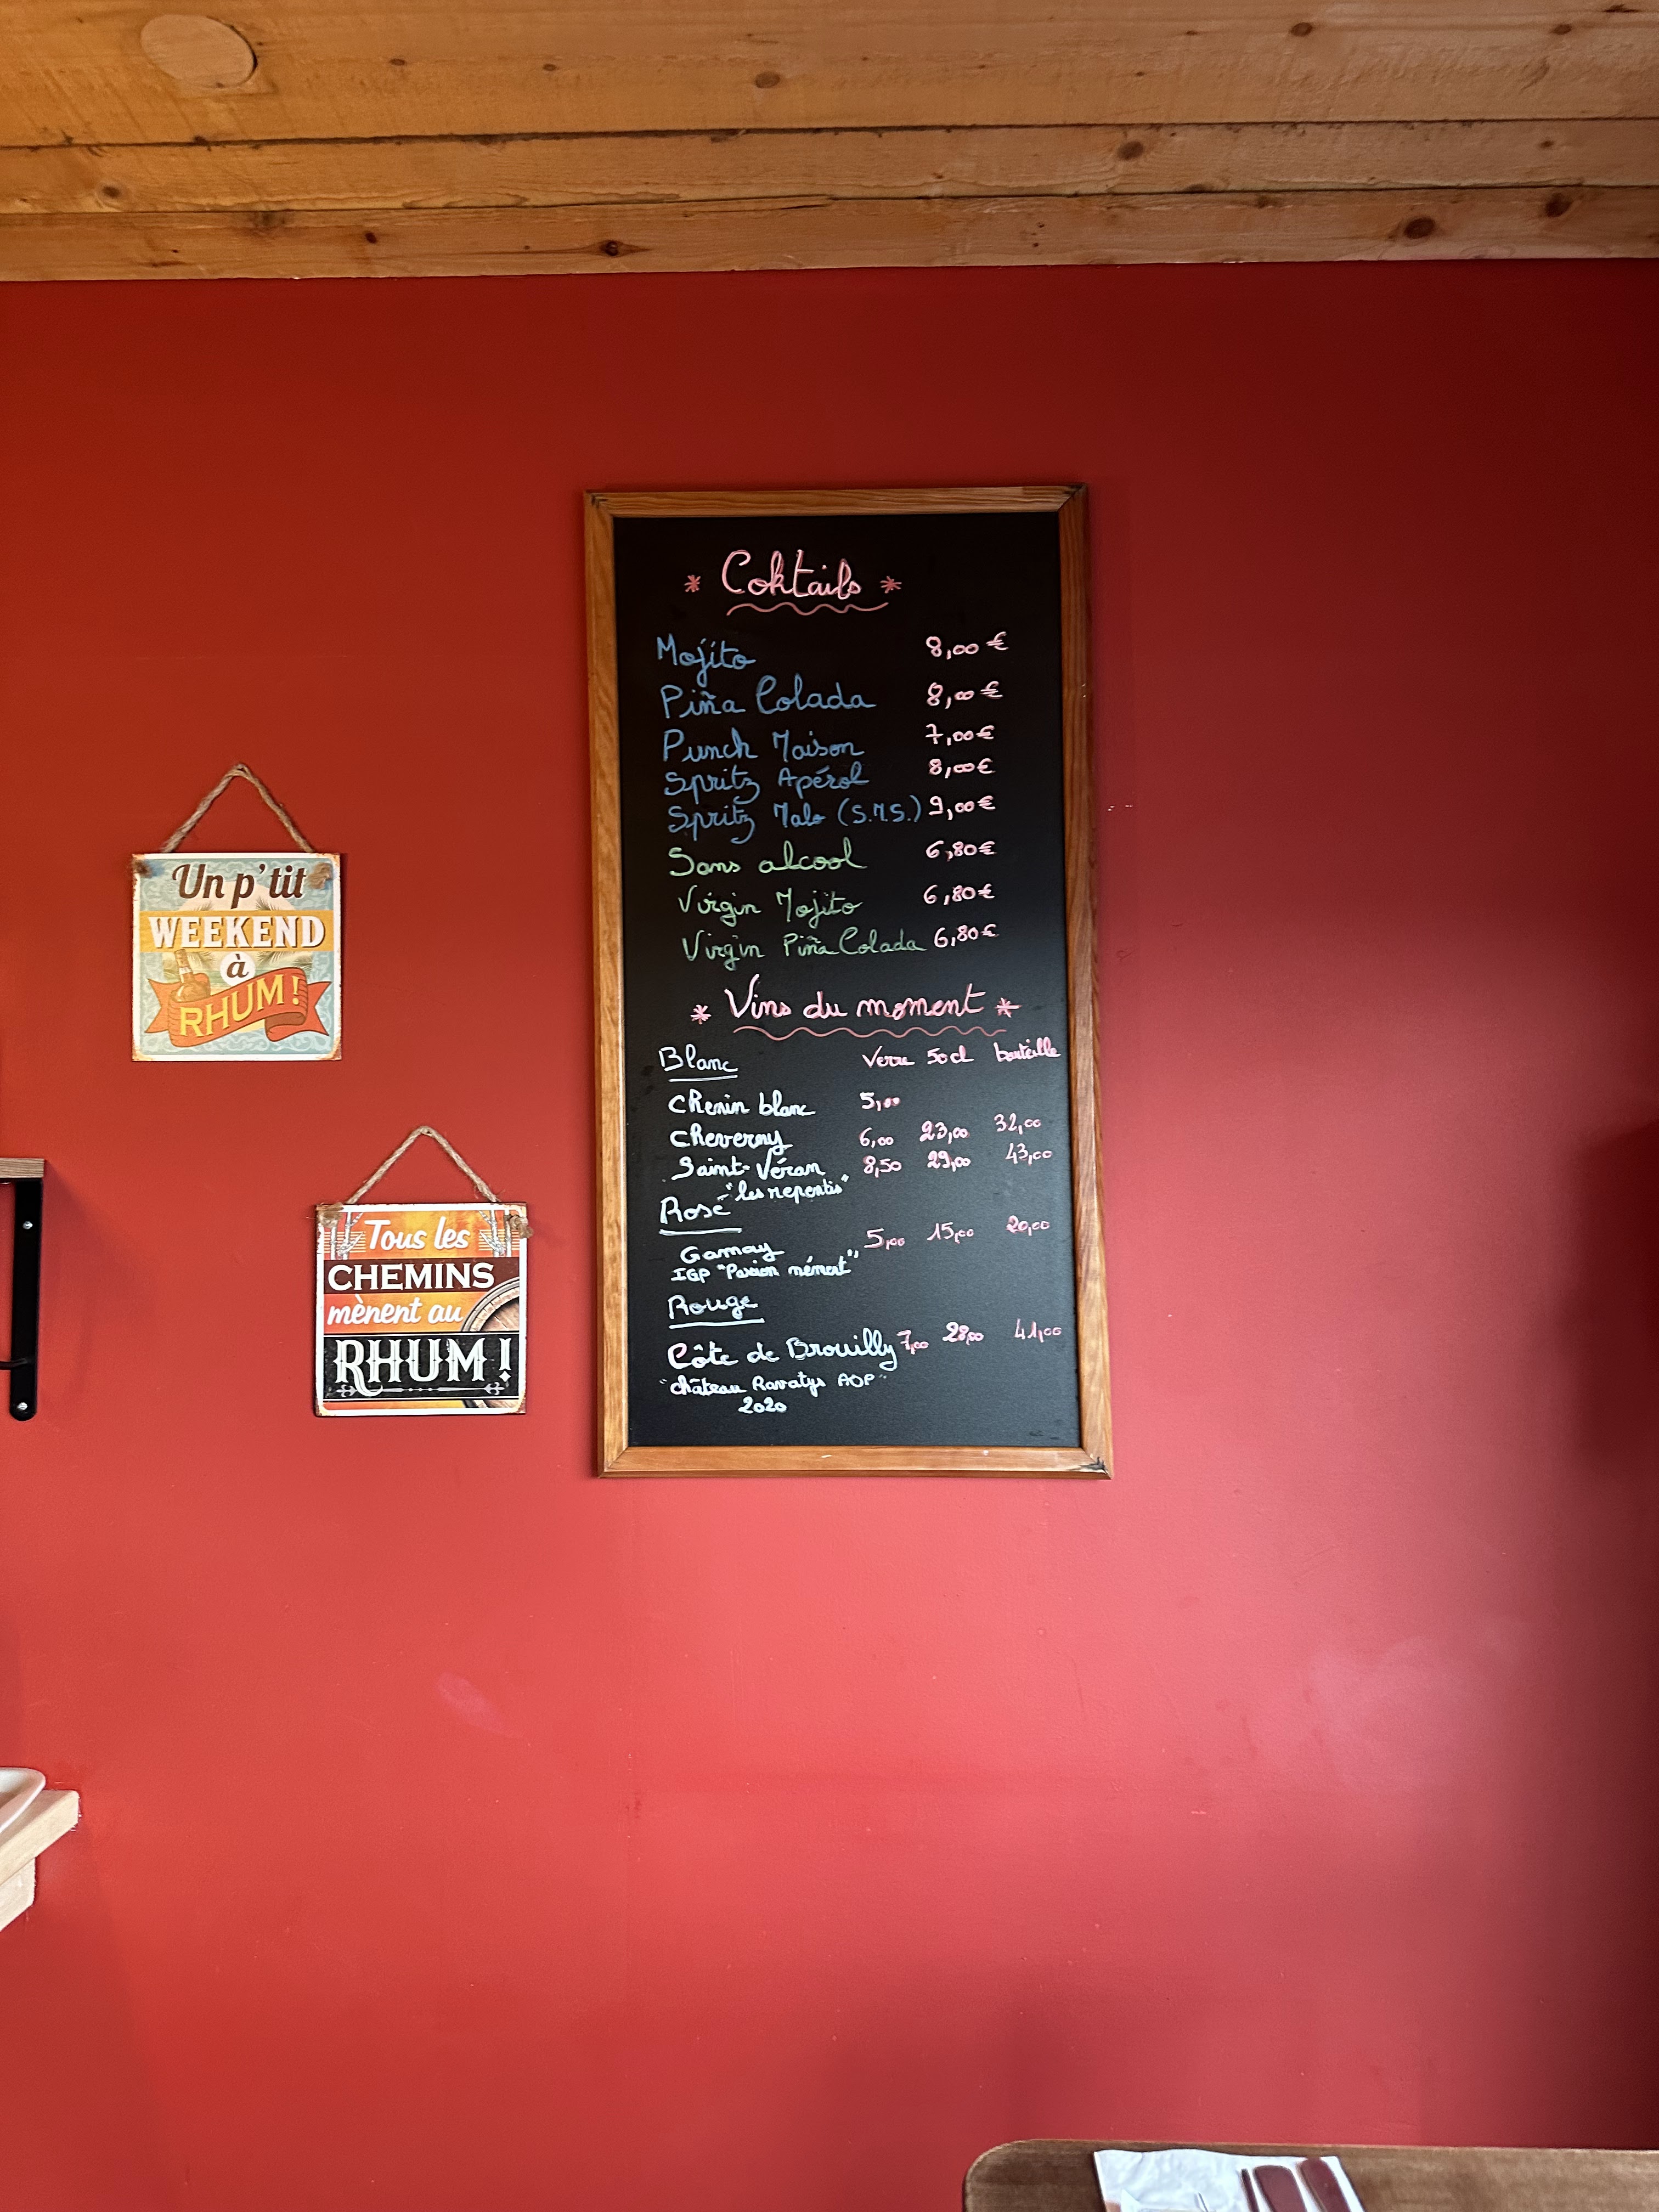 Un p'tit
WEEKEND
à
RHUM!
Tous les
CHEMINS
mènent au
RHUM!
* Coktails *
Mojito 8,00 €
Piña Colada 8,00 €
Punch Maison 7,00 €
Spritz Apérol 8,00 €
Spritz Malo (S.M.S.) 9,00 €
Sans alcool 6,80 €
Virgin Mojito 6,80 €
Virgin Piña Colada 6,80 €
* Vins du moment *
Blanc Verre 50cl bouteille
Chenin blanc 5,00
Cheverny 6,00 23,00 32,00
Saint-Véran 8,50 29,00 43,00
"les repentis"
Rosé
Gamay 5,00 15,00 20,00
IGP
Rouge
Côte de Brouilly 7,00 28,00 41,00
"château Ravatys AOP"
2020